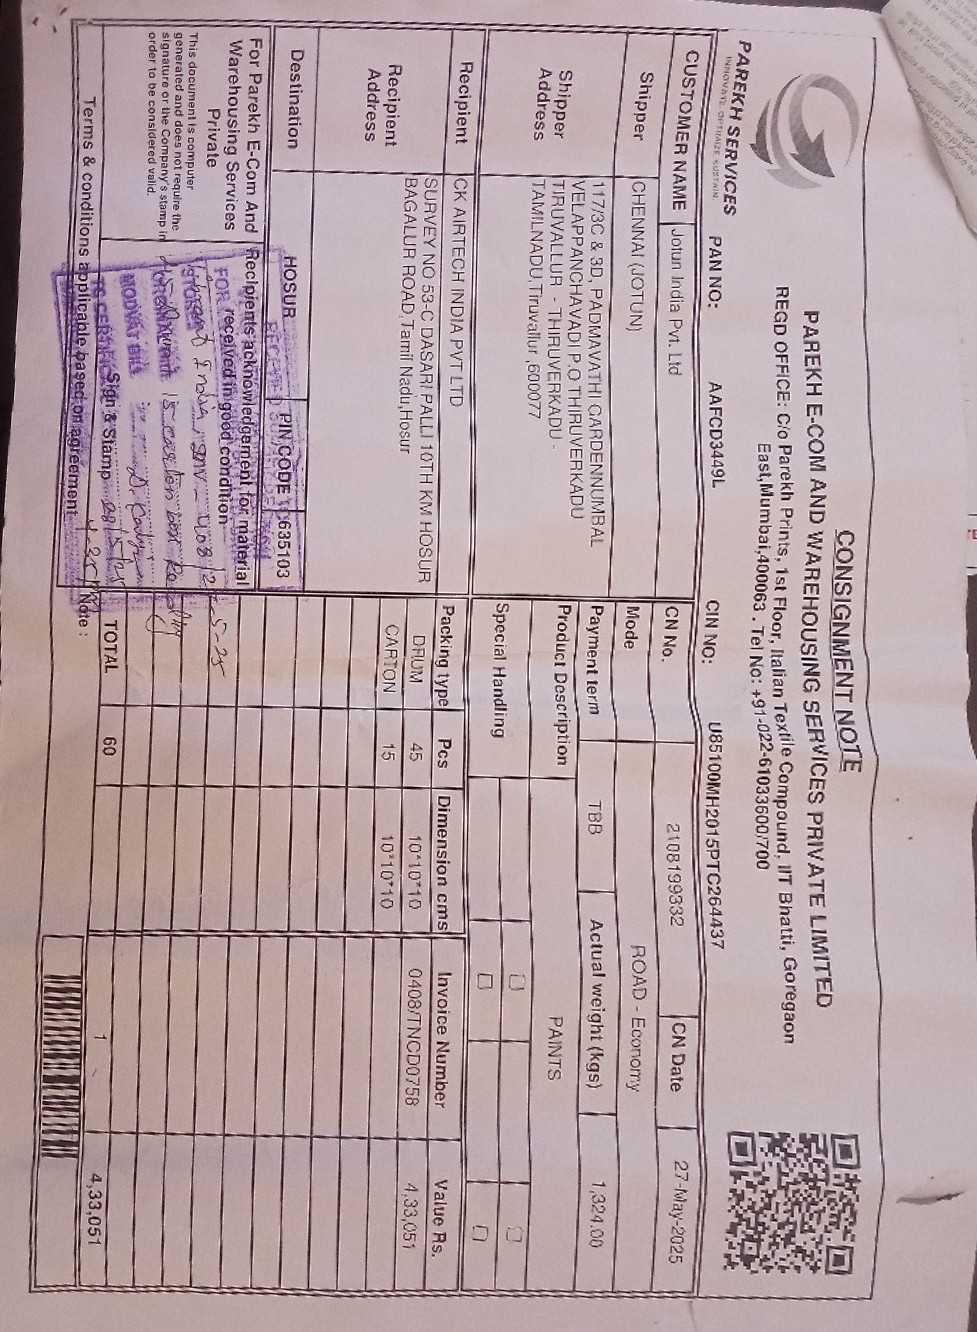 CONSIGNMENT NOTE
PAREKH E-COM AND WAREHOUSING SERVICES PRIVATE LIMITED
REGD OFFICE: C/o Parekh Prints, 1st Floor, Italian Textile Compound, IIT Bhatti, Goregaon
East,Mumbai,400063 . Tel No: +91-022-61033600/700
PAREKH SERVICES
INNOVATE OPTIMIZE SUSTAIN
PAN NO: AAFCD3449L CIN NO: U85100MH2015PTC264437
CUSTOMER NAME Jotun India Pvt. Ltd CN No. 2108199332 CN Date 27-May-2025
Shipper CHENNAI (JOTUN) Mode ROAD - Economy
Shipper Address
117/3C & 3D, PADMAVATHI GARDENNUMBAL
VELAPPANCHAVADI P.O THIRUVERKADU
TIRUVALLUR - THIRUVERKADU -
TAMILNADU,Tiruvallur,600077
Payment term TBB Actual weight (kgs) 1,324.00
Product Description PAINTS
Special Handling
Recipient CK AIRTECH INDIA PVT LTD
Recipient Address
SURVEY NO 53-C DASARI PALLI 10TH KM HOSUR
BAGALUR ROAD,Tamil Nadu,Hosur
Packing type Pcs Dimension cms Invoice Number Value Rs.
DRUM 45 10*10*10 0408/TNCD0758 4,33,051
CARTON 15 10*10*10
Destination HOSUR PIN CODE 635103
For Parekh E-Com And
Warehousing Services
Private
This document is computer
generated and does not require the
signature or the Company's stamp in
order to be considered valid.
Recipients acknowledgement for material
received in good condition
STORES
MODVAT BILL
Sign & Stamp
TOTAL 60 1 4,33,051
Terms & conditions applicable based on agreement
Note :